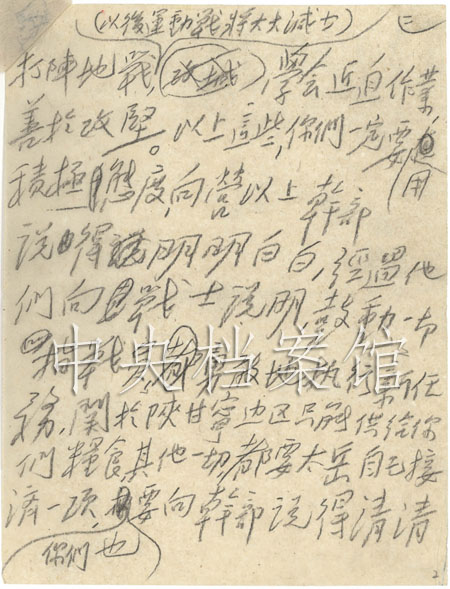 (以後運動戰將大大減少)
二
打陣地戰(攻城)學会近迫作業,
善於攻堅。以上這些,你們一定要用
積極態度,向营以上幹部
說得明明白白,經過他
們向戰士說明鼓動一切
戰 都 新任
務,関於陝甘寧边区只能供给你
們糧食其他一切都要太岳自己接
濟一项,要向幹部說得清清
你們也
2
中央档案馆